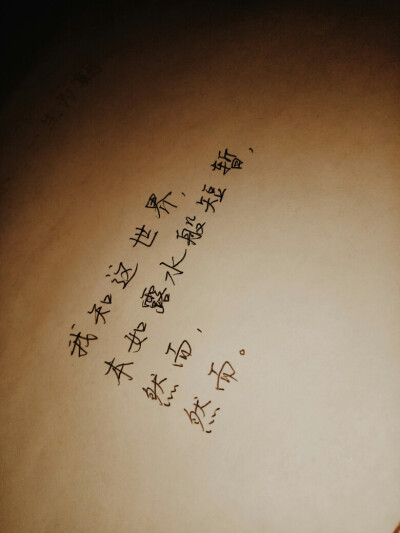 我知这世界，
本如露水般短暂，
然而，
然而。